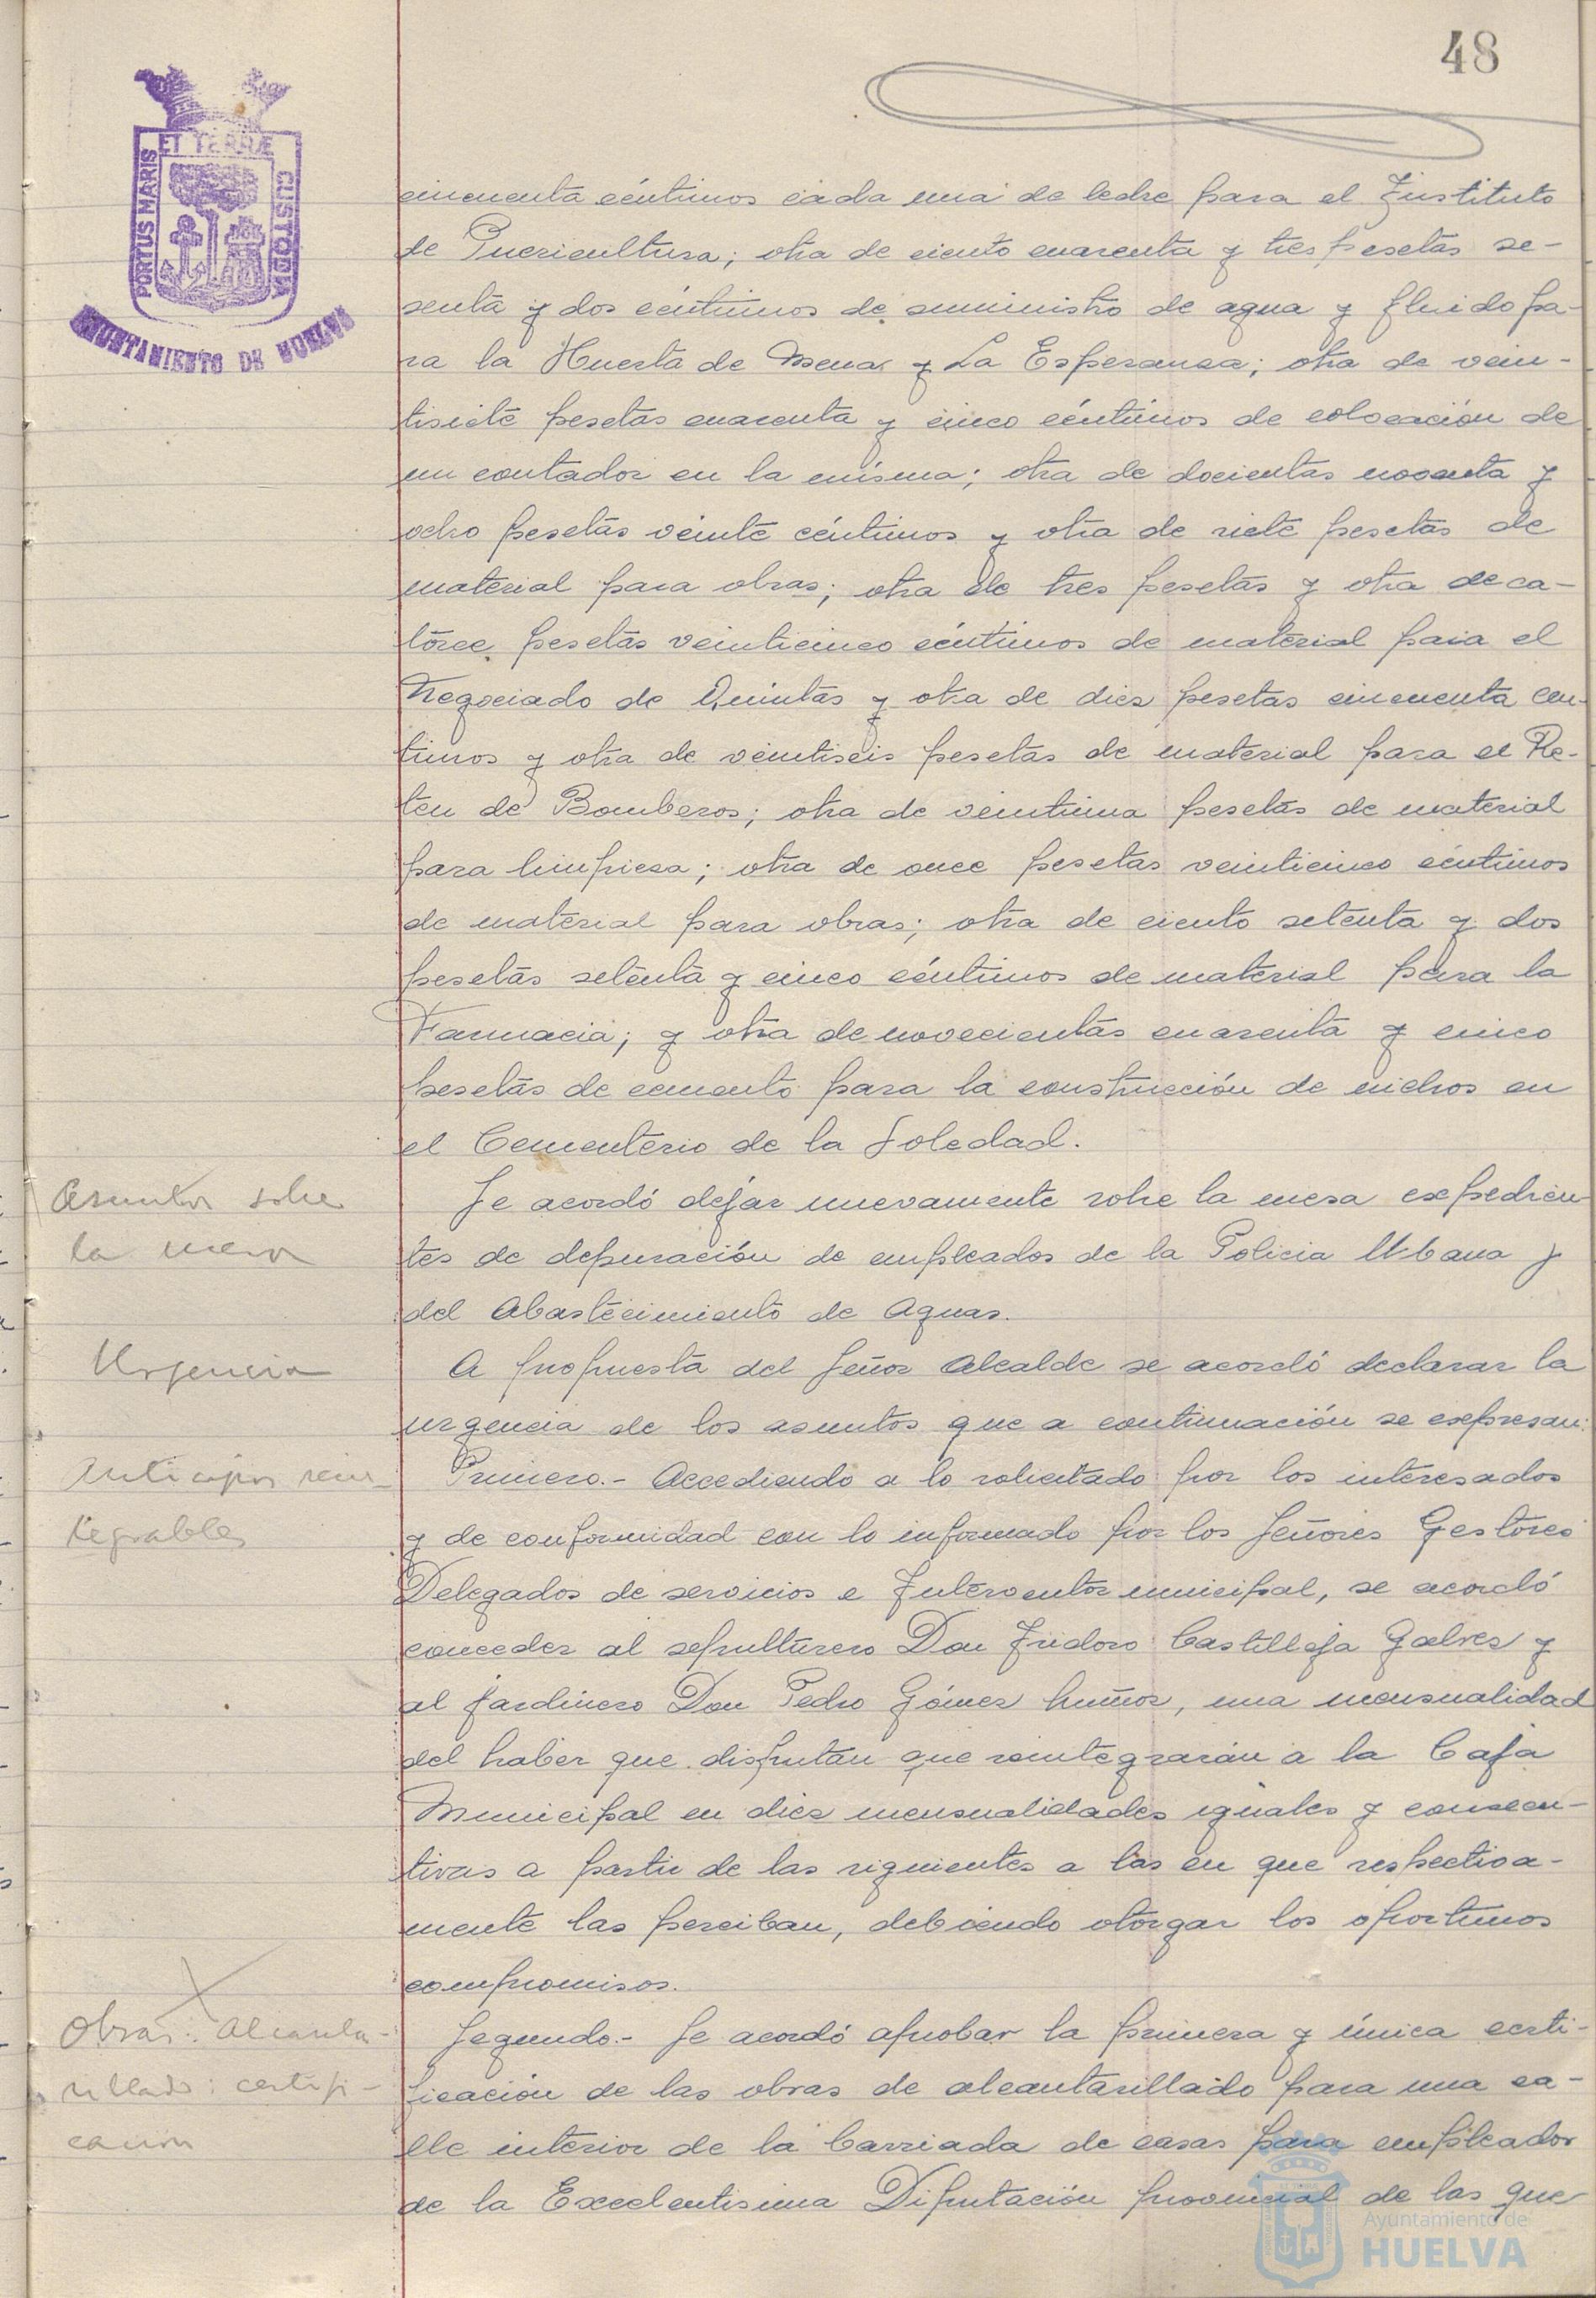 48
PORTUS MARIS
ET TERRÆ
CUSTODIA
AYUNTAMIENTO DE HUELVA
cincuenta céntimos cada una de leche para el Instituto
de Puericultura; otra de ciento cuarenta y tres pesetas se-
senta y dos céntimos de suministro de agua y fluido pa-
ra la Huerta de Mena y La Esperanza; otra de vein-
tisiete pesetas cuarenta y cinco céntimos de colocación de
un contador en la misma; otra de docientas noventa y
ocho pesetas veinte céntimos y otra de siete pesetas de
material para obras; otra de tres pesetas y otra de ca-
torce pesetas veinticinco céntimos de material para el
Negociado de Quintas y otra de diez pesetas cincuenta cen-
timos y otra de veintiseis pesetas de material para el Re-
ten de Bomberos; otra de veintiuna pesetas de material
para limpieza; otra de once pesetas veinticinco céntimos
de material para obras; otra de ciento setenta y dos
pesetas setenta y cinco céntimos de material para la
Farmacia; y otra de novecientas cuarenta y cinco
pesetas de cemento para la construcción de nichos en
el Cementerio de la Soledad.
Asuntos sobre
la mesa
Se acordó dejar nuevamente sobre la mesa expedien
tes de depuración de empleados de la Policia Urbana y
del Abastecimiento de Aguas.
Urgencia
A propuesta del Señor Alcalde se acordó declarar la
urgencia de los asuntos que a continuación se expresan:
Anticipos rein-
tegrables
Primero.- Accediendo a lo solicitado por los interesados
y de conformidad con lo informado por los Señores Gestores
Delegados de servicios e Interventor municipal, se acordó
conceder al sepulturero Don Isidoro Castilleja Galvez y
al jardinero Don Pedro Gómez Muñoz, una mensualidad
del haber que disfrutan que reintegrarán a la Caja
Municipal en diez mensualidades iguales y consecu-
tivas a partir de las siguientes a las en que respectiva-
mente las perciban, debiendo otorgar los oportunos
compromisos.
Obras: Alcanta-
rillado: certifi-
cación
Segundo.- Se acordó aprobar la primera y única certi-
ficación de las obras de alcantarillado para una ca-
lle interior de la barriada de casas para empleados
de la Excelentisima Diputación provincial de las que
Ayuntamiento de
HUELVA